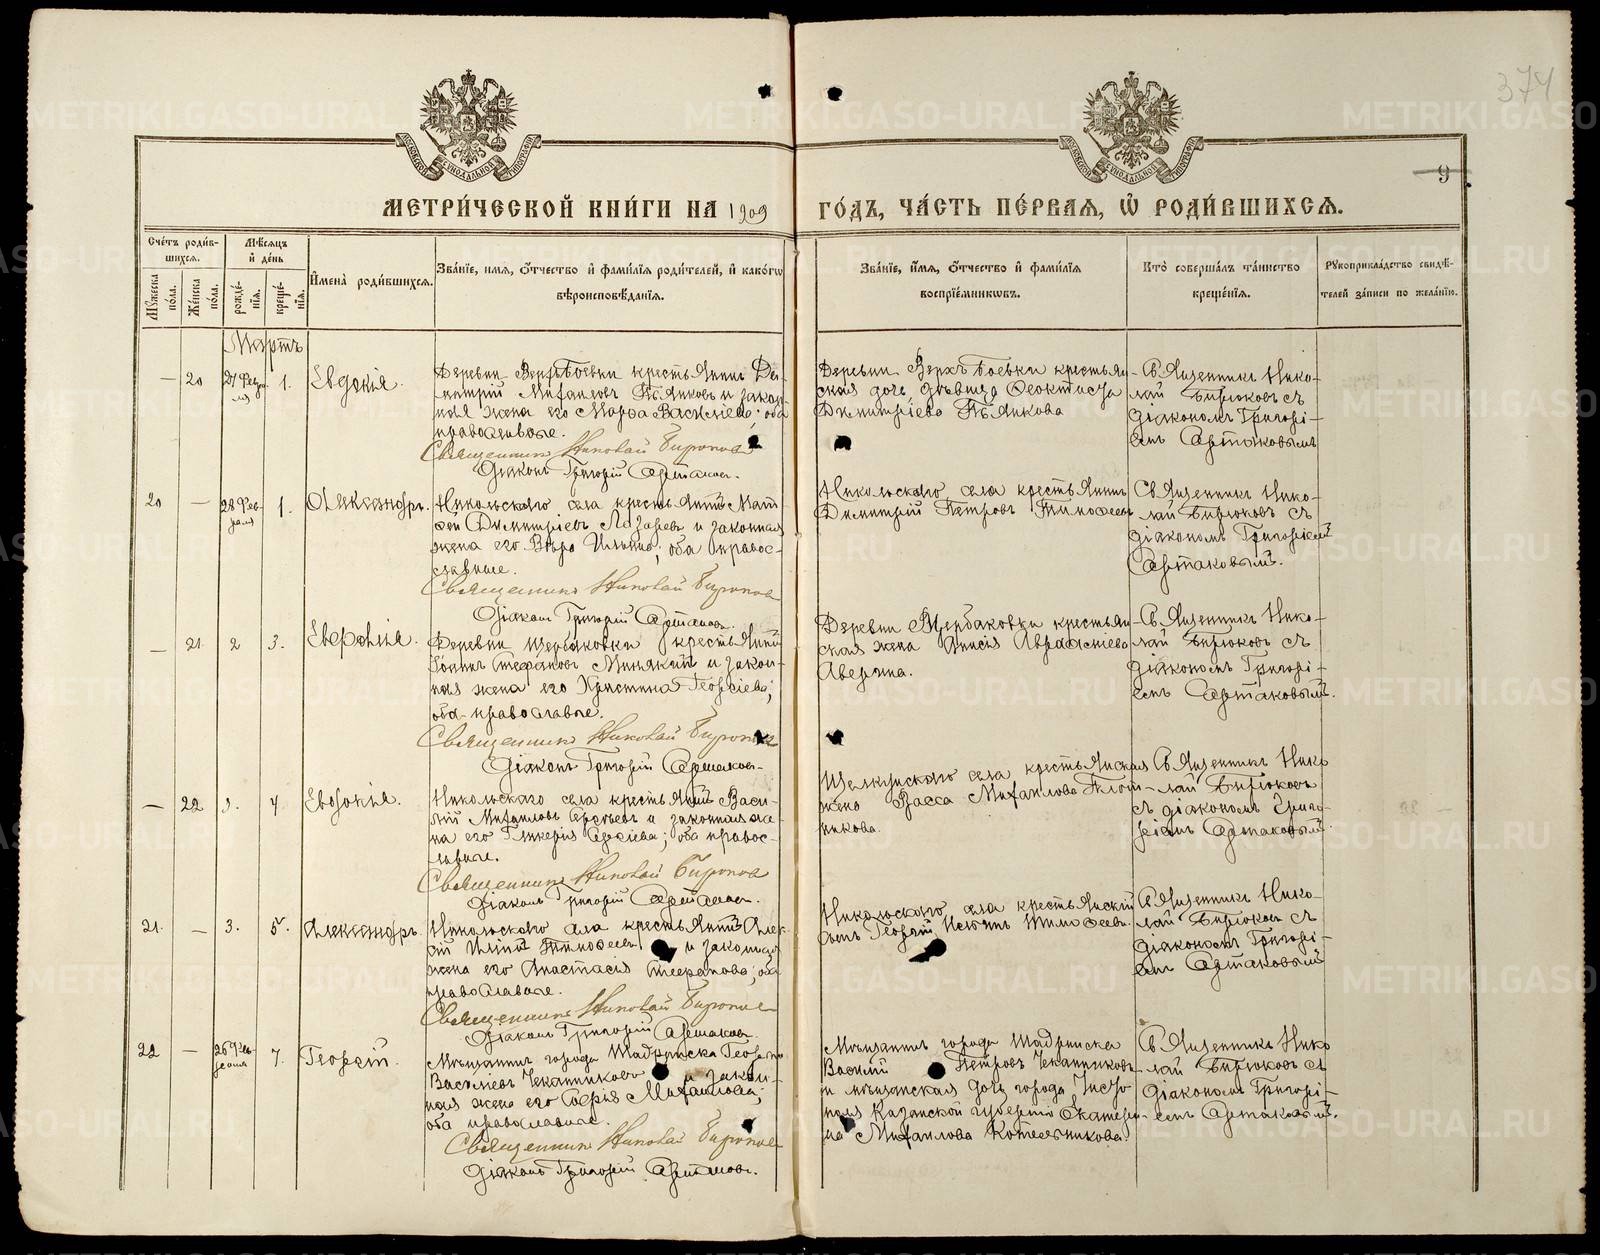 374
9
МЕТРИ́ЧЕСКОЙ КНИ́ГИ НА 1909 ГО́ДЪ, ЧА́СТЬ ПЕ́РВАЯ, Ѽ РОДИ́ВШИХСЯ.
Сче́тъ роди́в-
шихся.
Мѣ́сяцъ
и̑ де́нь
Мꙋ́жеска по́ла.
Же́нска по́ла.
рожде́-
нїѧ.
креще́-
нїѧ.
И̑мена̀ роди́вшихсѧ.
Зва́нїе, и̑мѧ, ѻ҆́тчество и҆ фами́лїѧ роди́телей, и҆ како́гѡ
вѣроисповѣ́данїѧ.
Зва́нїе, и҆́мѧ, ѻ҆́тчество и҆ фами́лїѧ
воспрїе́мниковъ.
Кто̀ соверша́лъ та́инство
креще́нїѧ.
Рꙋкоприкла́дство свидѣ́-
телей за́писи по жела́нїю.
Мартъ
— 20 27 Февра-
ля 1. Евдокія.
Деревни Верхъ Боевки крестьянинъ Ди-
митрій Михаиловъ Пьянковъ и закон-
ная жена его Марфа Васильева; оба
православные.
Священникъ Николай Бирюковъ
Діаконъ Григорій Сартаковъ.
Деревни Верхъ Боевки крестьян-
ская дочь, дѣвица Феоктиста
Димитріева Пьянкова
Священникъ Нико-
лай Бирюковъ съ
діакономъ Григорі-
емъ Сартаковымъ
20 — 28 Фев-
раля 1. Александръ.
Никольскаго села крестьянинъ Мат-
фей Димитріевъ Лазаревъ и законная
жена его Вѣра Ильина; оба правос-
славные.
Священникъ Николай Бирюковъ
Діаконъ Григорій Сартаковъ.
Никольскаго села крестьянинъ
Димитрій Петровъ Тимофеевъ
Священникъ Нико-
лай Бирюковъ съ
діакономъ Григоріемъ
Сартаковымъ.
— 21. 2 3. Евфронія.
Деревни Щербаковки крестьянинъ
Іоаннъ Стефановъ и закон-
ная жена его Христина Георгіева;
оба православные.
Священникъ Николай Бирюковъ
Діаконъ Григорій Сартаковъ.
Деревни Щербаковки крестьян-
ская жена Анисія
Аверина.
Священникъ Нико-
лай Бирюковъ съ
діакономъ Григорі-
емъ Сартаковымъ.
— 22 3. 4 Евдокія.
Никольскаго села крестьянинъ Васи-
лій Михаиловъ и законная же-
на его Гликерія Сергіева; оба правос-
лавные.
Священникъ Николай Бирюковъ
Діаконъ Григорій Сартаковъ.
Щелкунскаго села крестьянская
жена Васса Михаилова Плот-
никова.
Священникъ Нико-
лай Бирюковъ
съ діакономъ Григо-
ріемъ Сартаковымъ
21. — 3. 5. Александръ.
Никольскаго села крестьянинъ Алек-
сій Ильинъ Тимофеевъ и законная
жена его Анастасія Стефанова; оба
православные.
Священникъ Николай Бирюковъ
Діаконъ Григорій Сартаковъ.
Никольскаго села крестьянскій
сынъ Георгій Тимофеевъ.
Священникъ Нико-
лай Бирюковъ съ
діакономъ Григорі-
емъ Сартаковымъ
22 — 26 Фев-
раля 7. Георгій.
Мѣщанинъ города Шадринска Георгій
Василіевъ Чеканниковъ и закон-
ная жена его Марія Михайлова;
оба православные.
Священникъ Николай Бирюковъ
Діаконъ Григорій Сартаковъ.
Мѣщанинъ города Шадринска
Василій Петровъ Чеканниковъ
и мѣщанская дочь города Чисто-
поля Казанской губерніи Екатери-
на Михаилова Котельникова.
Священникъ Нико-
лай Бирюковъ съ
діакономъ Григорі-
емъ Сартаковымъ.
METRIKI.GASO-URAL.RU